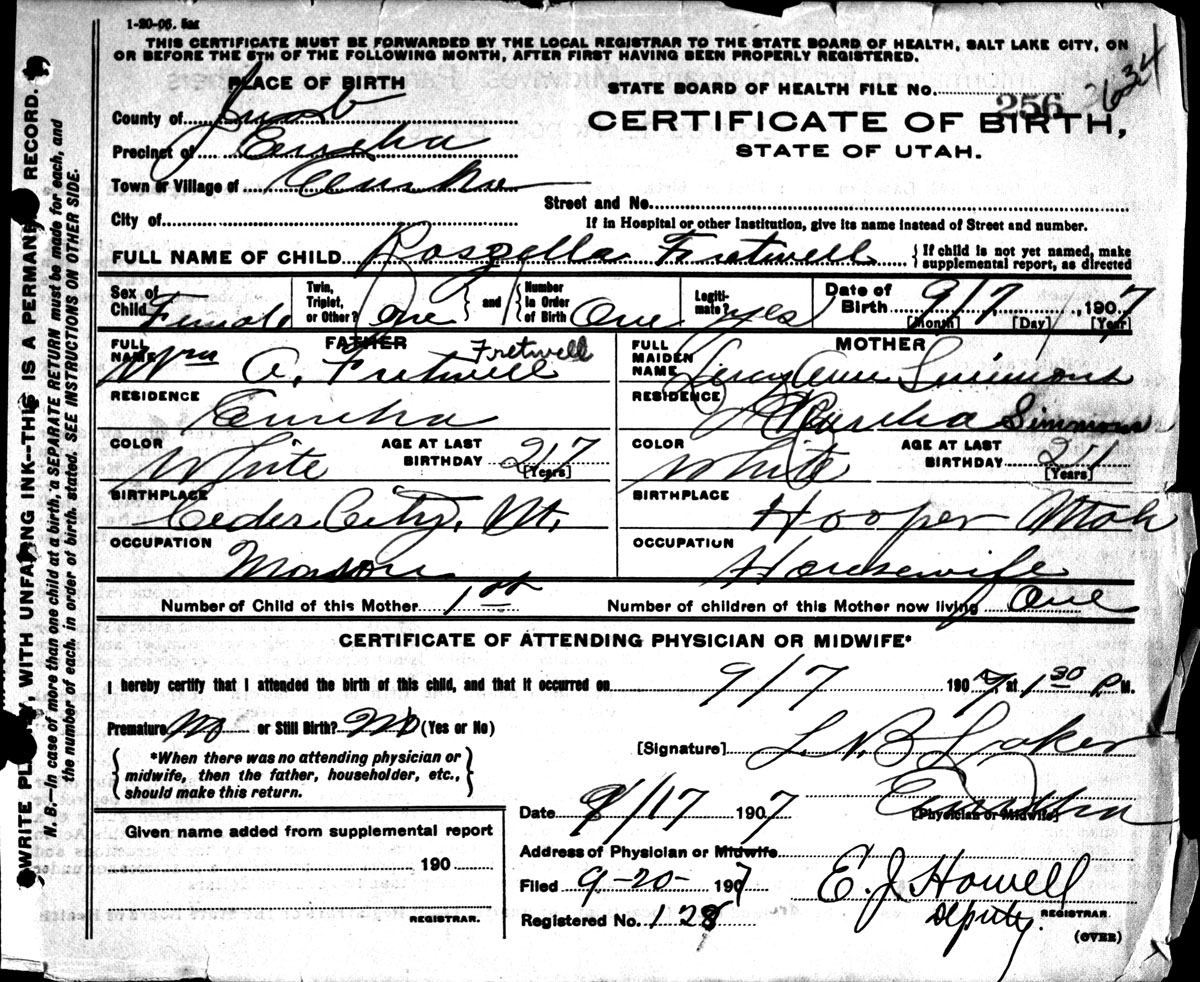 1-20-06. 5m
THIS CERTIFICATE MUST BE FORWARDED BY THE LOCAL REGISTRAR TO THE STATE BOARD OF HEALTH, SALT LAKE CITY, ON
OR BEFORE THE 5TH OF THE FOLLOWING MONTH, AFTER FIRST HAVING BEEN PROPERLY REGISTERED.
PLACE OF BIRTH
STATE BOARD OF HEALTH FILE No. 256
County of Juab
CERTIFICATE OF BIRTH,
Precinct of Eureka
STATE OF UTAH.
Town or Village of Eureka
Street and No.
City of
If in Hospital or other Institution, give its name instead of Street and number.
FULL NAME OF CHILD Roszella Fretwell {If child is not yet named, make supplemental report, as directed
Sex of Child Female Twin, Triplet, or Other? One and Number in Order of Birth One Legitimate? yes Date of Birth 9/7, 1907
[Month] [Day] [Year]
FATHER
MOTHER
FULL NAME Wm A. Fretwell Fretwell
FULL MAIDEN NAME Lucy Ann Simmons
RESIDENCE Eureka
RESIDENCE Eureka Simmons
COLOR White AGE AT LAST BIRTHDAY 27 [Years]
COLOR White AGE AT LAST BIRTHDAY 21 [Years]
BIRTHPLACE Ceder City, Ut.
BIRTHPLACE Hooper Utah
OCCUPATION Mason
OCCUPATION Housewife
Number of Child of this Mother 1st
Number of children of this Mother now living One
CERTIFICATE OF ATTENDING PHYSICIAN OR MIDWIFE*
I hereby certify that I attended the birth of this child, and that it occurred on 9/7 1907, at 1 30 P. M.
Premature No or Still Birth? No (Yes or No)
[Signature]
*When there was no attending physician or
midwife, then the father, householder, etc.,
should make this return.
Eureka
[Physician or Midwife]
Date 9/17 1907
Given name added from supplemental report
190
REGISTRAR.
Address of Physician or Midwife
Filed 9-20- 1907
E. J. Howell
Registered No. 128
Deputy. REGISTRAR.
(OVER)
WRITE PLAINLY, WITH UNFADING INK--THIS IS A PERMANENT RECORD.
N. B.—In case of more than one child at a birth, a SEPARATE RETURN must be made for each, and
the number of each, in order of birth, stated. SEE INSTRUCTIONS ON OTHER SIDE.